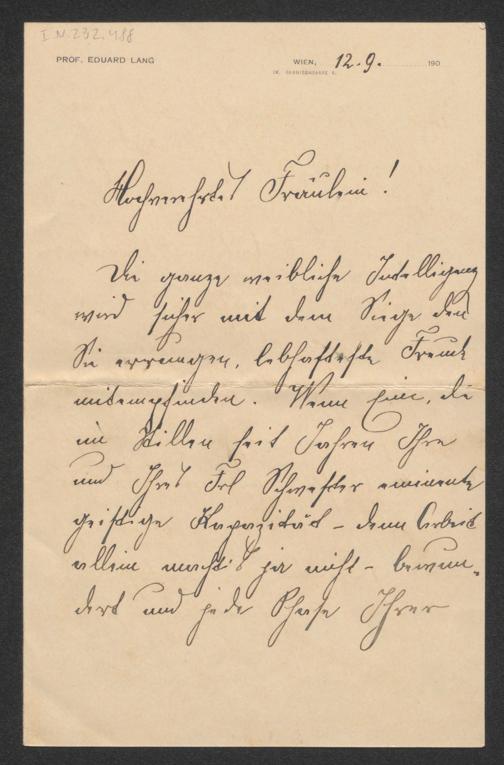 I.N. 232.488
PROF. EDUARD LANG
WIEN, 12.9. 190
IX. GARNISONGASSE 6.
Hochverehrtes Fräulein!
Die ganze weibliche Intelligenz
wird sicher mit dem Siege den
Sie errungen, lebhafteste Freude
mitempfinden. Wenn Eine, die
im Stillen seit Jahren Ihre
und Ihres Frl Schwester eminente
geistige Kapazität – denn Arbeit
allein macht's ja nicht – bewun-
dert und jede Phase Ihrer